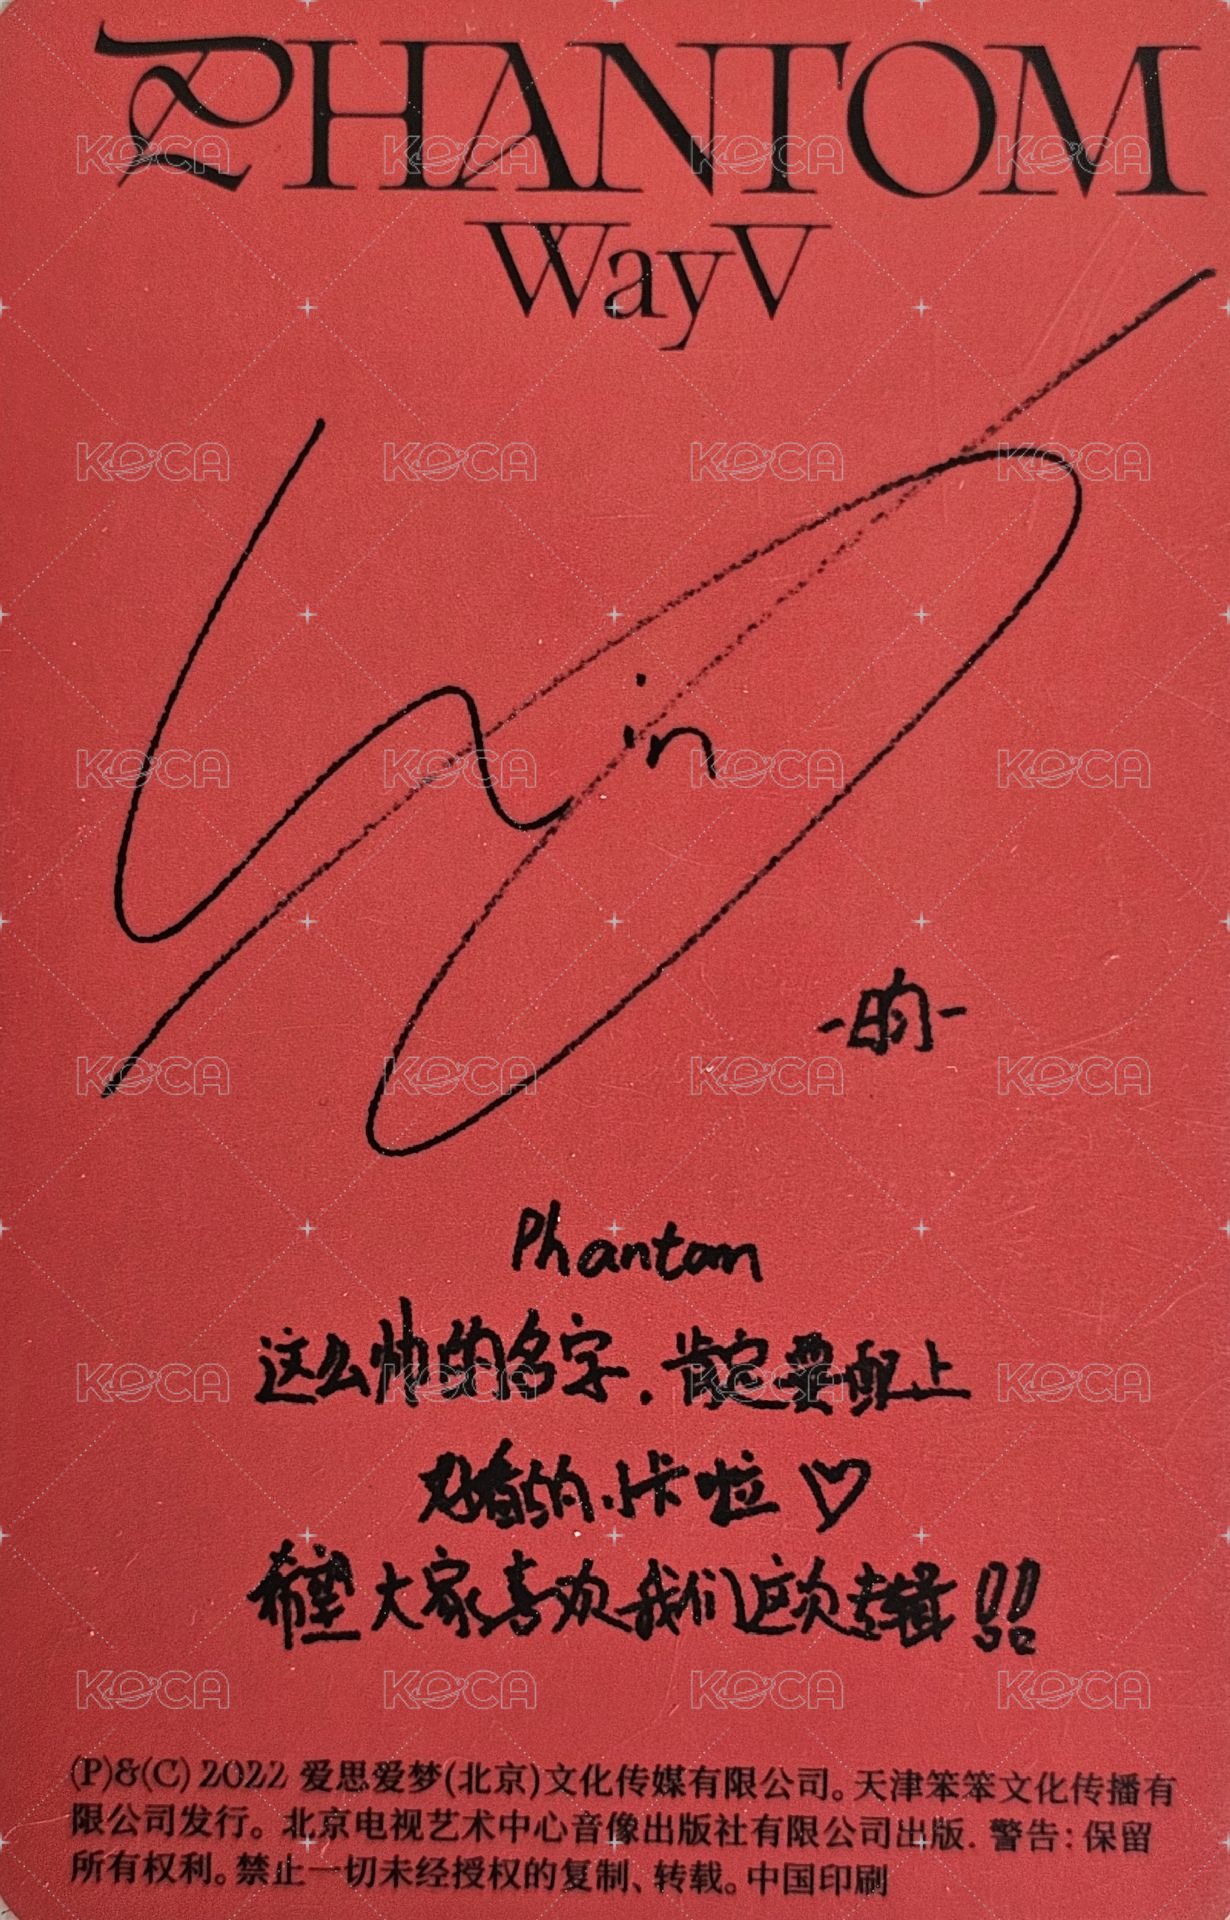 PHANTOM
WayV
Win
-昀-
Phantom
这么帅的名字.肯定要配上
好看的小卡啦♡
希望大家喜欢我们这次专辑!!
(P)&(C) 2022 爱思爱梦(北京)文化传媒有限公司。天津笨笨文化传播有
限公司发行。北京电视艺术中心音像出版社有限公司出版. 警告:保留
所有权利。禁止一切未经授权的复制、转载。中国印刷
KOCA